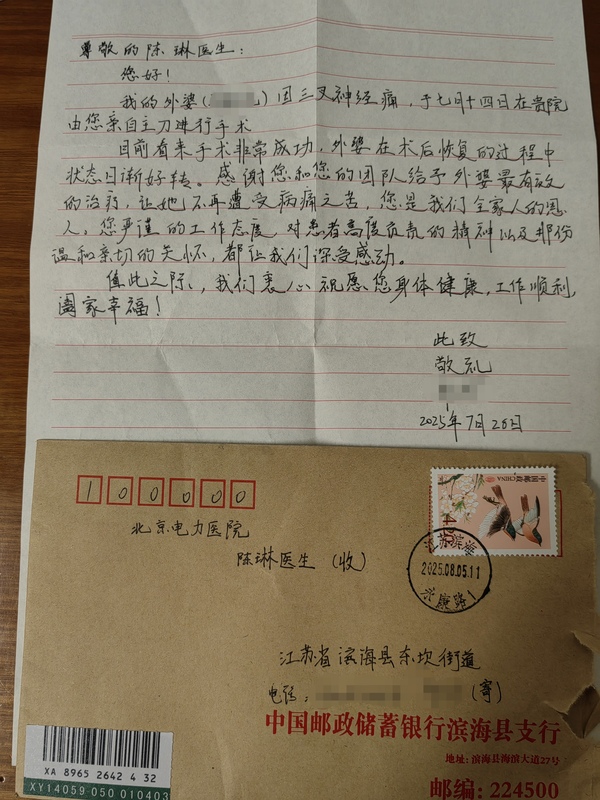 尊敬的陈琳医生：
您好！
我的外婆（ ）因三叉神经痛，于七月十四日在贵院
由您亲自主刀进行手术
目前看来手术非常成功，外婆在术后恢复的过程中
状态日渐好转。感谢您和您的团队给予外婆最有效
的治疗，让她不再遭受病痛之苦，您是我们全家人的恩
人，您严谨的工作态度，对患者高度负责的精神以及那份
温和亲切的关怀，都让我们深受感动。
值此之际，我们衷心祝愿您身体健康，工作顺利，
阖家幸福！
此致
敬礼
2025年7月26日
100000
中国邮政 CHINA
北京电力医院
陈琳医生（收）
江苏滨海
2025.08.05.11
永康路1
江苏省滨海县东坎街道
电话： （寄）
中国邮政储蓄银行滨海县支行
地址：滨海县海滨大道27号
邮编：224500
XA 8965 2642 4 32
XY14059 050 010403